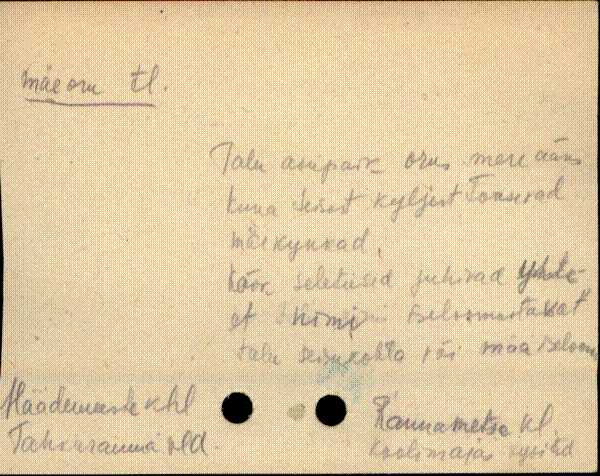 mäeoru tl.
Talu asupaik orus mere ääres
kuna teisest kyljest tõusevad
mäekynkad.
Kõik seletused juhivad
et nimi iseloomustavat
talu seisukohta või maa iseloomu
Häädemeeste khl
Tahkuranna vld.
Rannametsa kl.
koolimajas